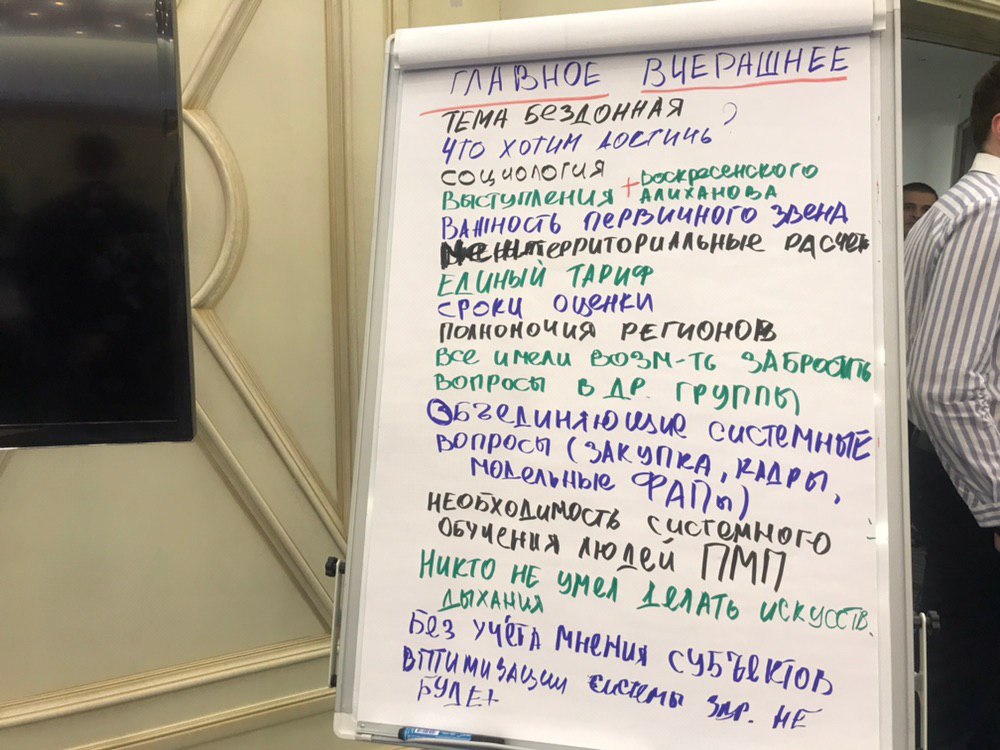 ГЛАВНОЕ ВЧЕРАШНЕЕ
ТЕМА БЕЗДОННАЯ
ЧТО ХОТИМ ДОСТИЧЬ?
СОЦИОЛОГИЯ
ВЫСТУПЛЕНИЯ + ВОСКРЕСЕНСКОГО
АЛИХАНОВА
ВАЖНОСТЬ ПЕРВИЧНОГО ЗВЕНА
МЕЖТЕРРИТОРИАЛЬНЫЕ РАСЧЕТ
ЕДИНЫЙ ТАРИФ
СРОКИ ОЦЕНКИ
ПОЛНОМОЧИЯ РЕГИОНОВ
ВСЕ ИМЕЛИ ВОЗМ-ТЬ ЗАБРОСИТЬ
ВОПРОСЫ В ДР. ГРУППЫ
ОБЪЕДИНЯЮЩИЕ СИСТЕМНЫЕ
ВОПРОСЫ (ЗАКУПКА, КАДРЫ,
МОДЕЛЬНЫЕ ФАПЫ)
НЕОБХОДИМОСТЬ СИСТЕМНОГО
ОБУЧЕНИЯ ЛЮДЕЙ ПМП
НИКТО НЕ УМЕЛ ДЕЛАТЬ ИСКУССТВ.
ДЫХАНИЯ
БЕЗ УЧЁТА МНЕНИЯ СУБЪЕКТОВ
ОПТИМИЗАЦИИ СИСТЕМЫ ЗДР. НЕ
БУДЕТ